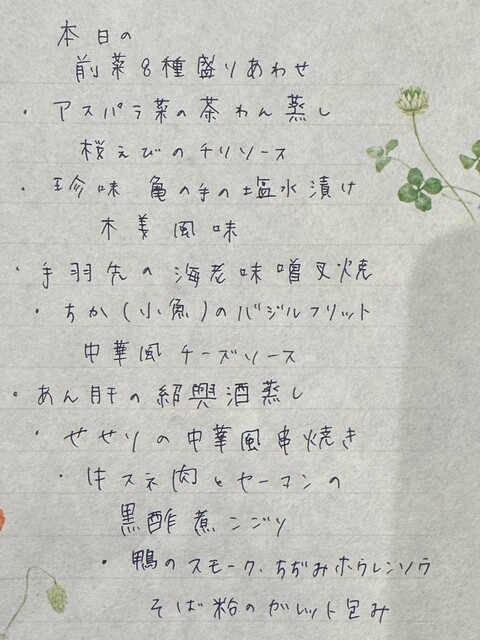 本日の
前菜8種盛りあわせ
・アスパラ菜の茶わん蒸し
桜えびのチリソース
・珍味 亀の手の塩水漬け
木姜風味
・手羽先の海老味噌叉焼
・ちか(小魚)のバジルフリット
中華風チーズソース
・あん肝の紹興酒蒸し
・せせりの中華風串焼き
・牛スネ肉とセーコンの
黒酢煮こごり
・鴨のスモーク、ちぢみホウレンソウ
そば粉のガレット包み